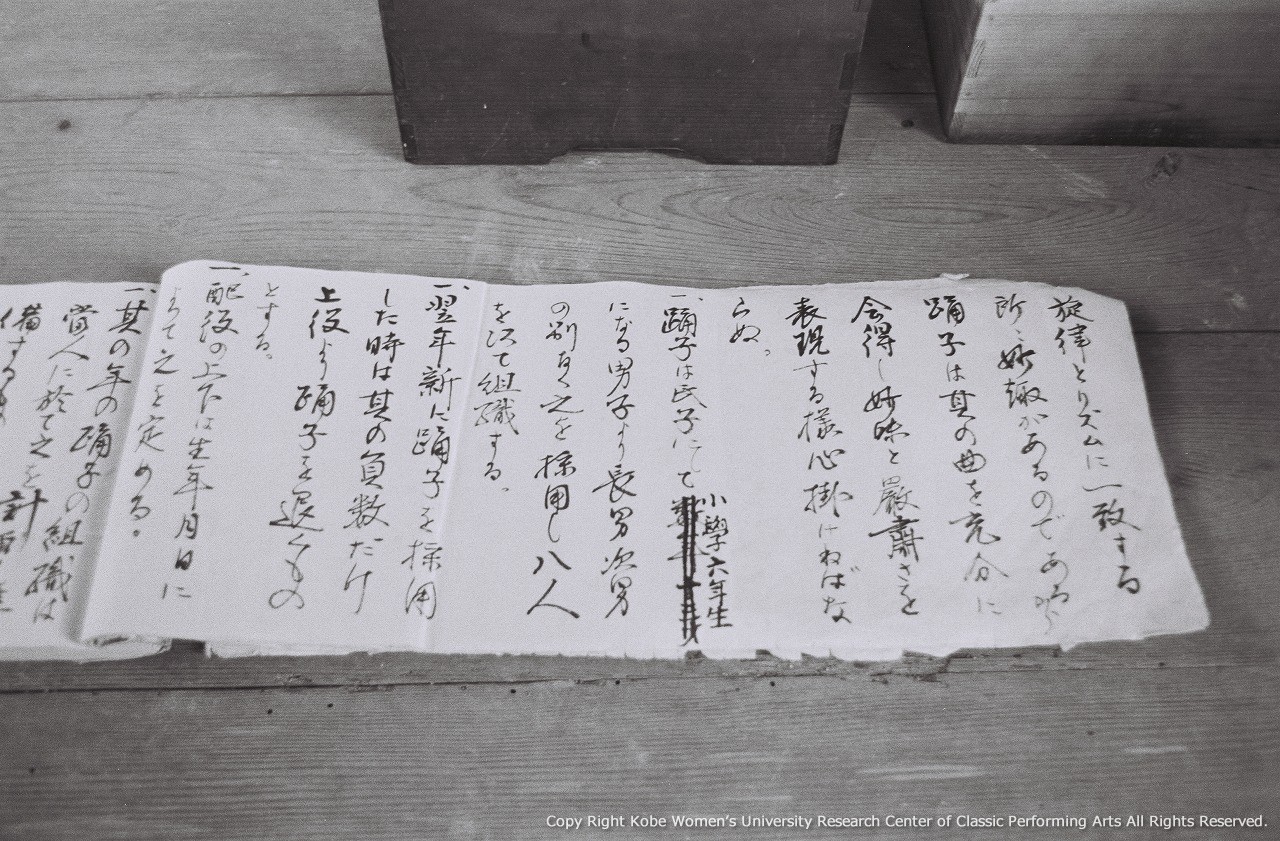 旋律とリズムに一致する
所に妙趣があるのであるから
踊子は其の曲を充分に
会得し妙味と厳肅さを
表現する様心掛けねばな
らぬ。
一、踊子は氏子にして小學六年生
になる男子より長男次男
の別なく之を採用し八人
を以て組織する。
一、翌年新に踊子を採用
した時は其の員数だけ
上役より踊子を退くもの
とする。
一、配役の上下は生年月日に
よつて之を定める。
一、其の年の踊子の組織は
當人に於て之を計画
備する
Copy Right Kobe Women's University Research Center of Classic Performing Arts All Rights Reserved.